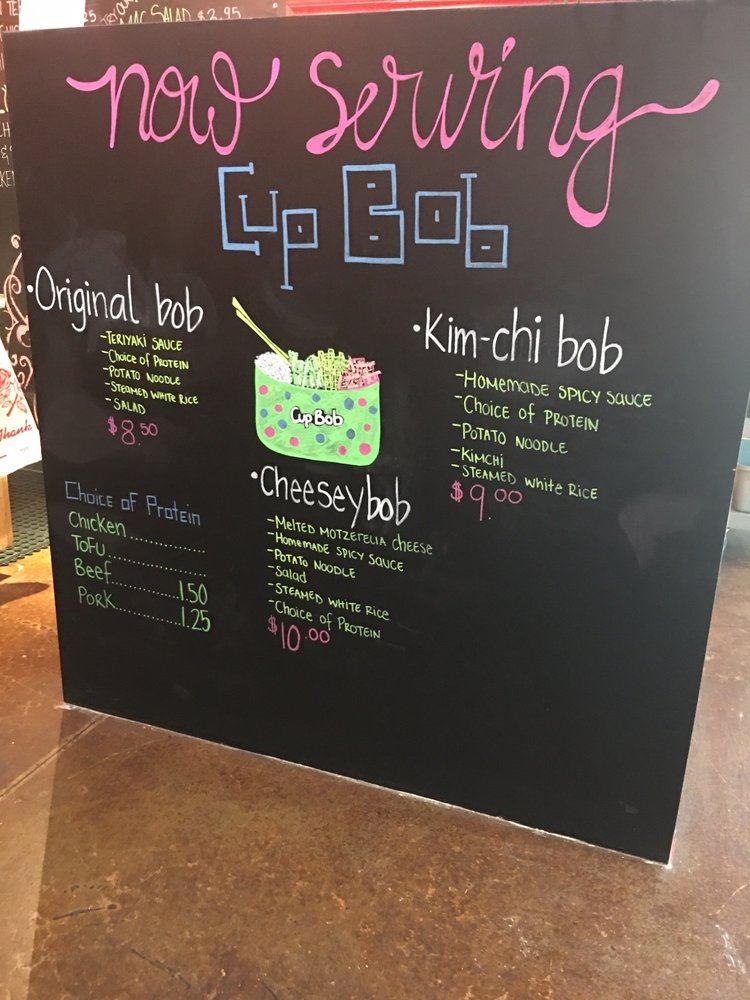 MAC SALAD $2.95
now serving
Cup Bob
•Original bob
-TERIYAKI SAUCE
-Choice of PROTEIN
-POTATO NOODLE
-STEAMED WHITE RICE
-SALAD
$8.50
Cup Bob
•Kim-chi bob
-HOMEMADE SPICY SAUCE
-Choice of PROTEIN
-POTATO NOODLE
-KIMCHI
-STEAMED White RICE
$9.00
Choice of Protein
Chicken..............
ToFu..................
Beef............1.50
Pork............1.25
•Cheeseybob
-MELTED MOTZERELIA cheese
-Homemade SPICY SAUCE
-POTATO NOODLE
-Salad
-STEAMED WHITE RICE
-Choice of PROTEIN
$10.00
Thank